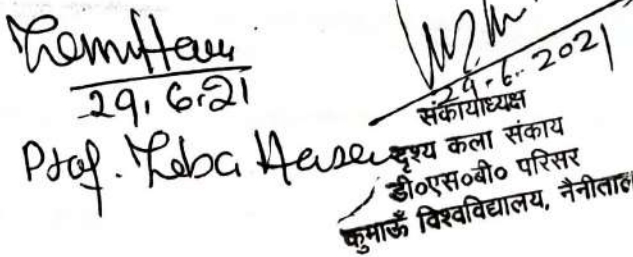 29.6.21
Prof. Zeba Hasan
29.6.2021
संकायाध्यक्ष
दृश्य कला संकाय
डी०एस०बी० परिसर
कुमाऊँ विश्वविद्यालय, नैनीताल